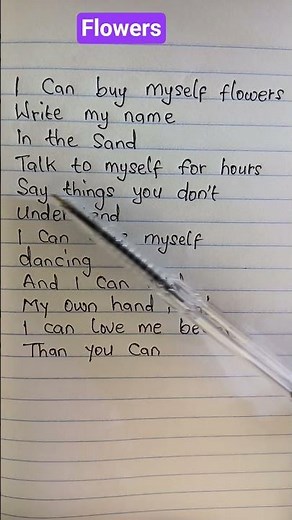 Flowers
I Can buy myself flowers
Write my name
In the Sand
Talk to myself for hours
Say things you don't
I Can myself
dancing
And I can
My own hand,
I can love me
Than you Can